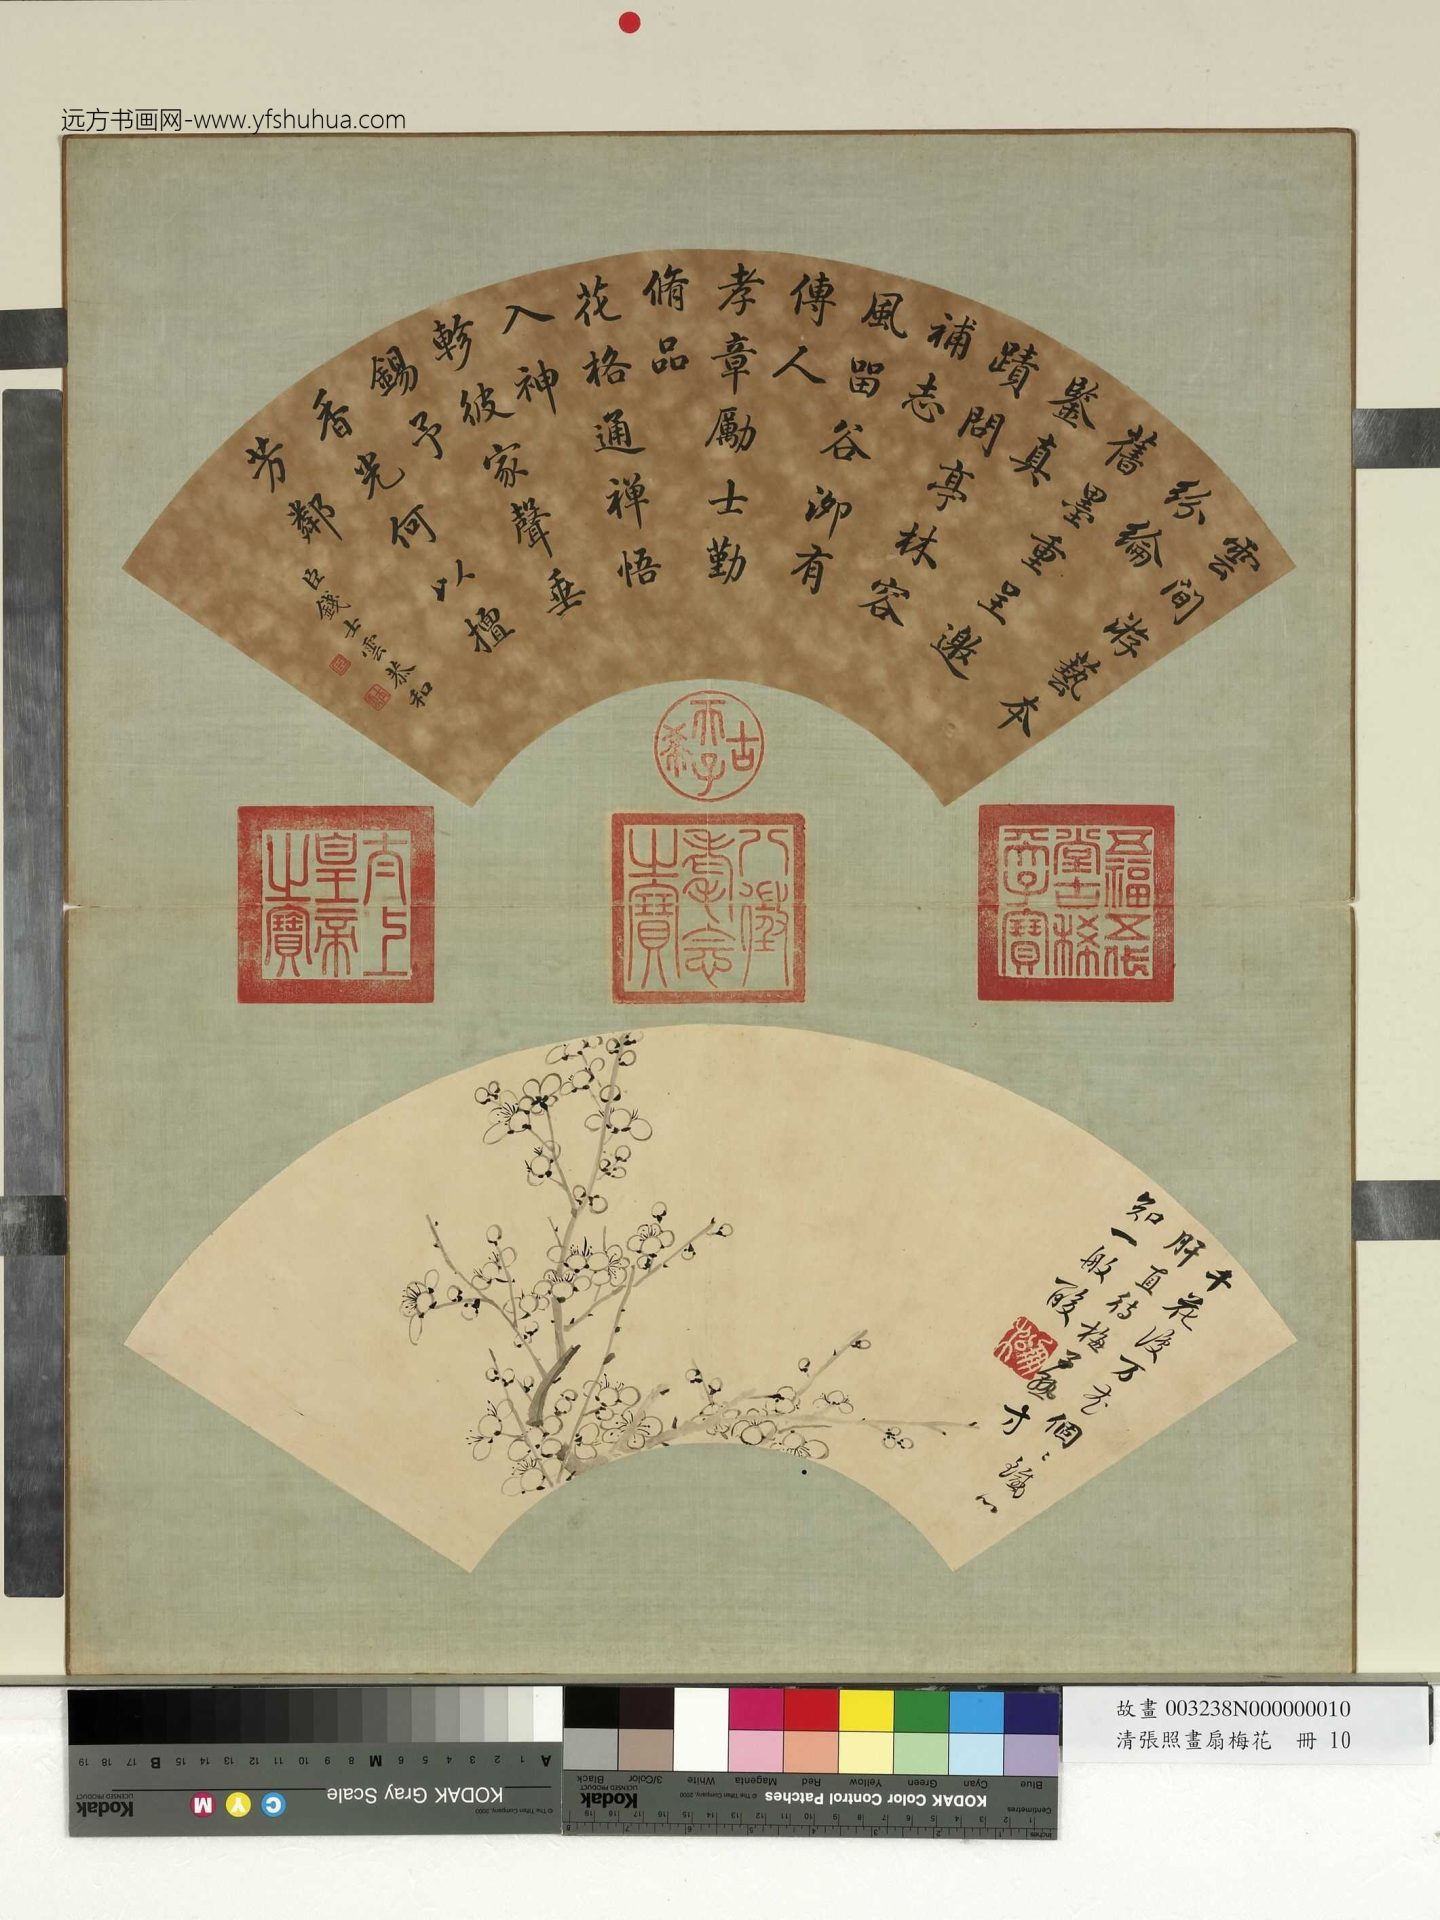 远方书画网-www.yfshuhua.com
雲間游藝本
經綸
舊墨重呈邀
鑒真
蹟問亭林容
補志
風留谷泖有
傳人
孝章勵士勤
脩品
花格通禅悟
入神
軫彼家聲垂
錫予
香光何以擅
芳鄰
臣錢士雲恭和
古希天子
五福五代堂古稀天子寶
八徵耄念之寶
太上皇帝之寶
千花復万花個〻鐵心
肝直待梅子熟方
知一般酸
KODAK Gray Scale
Kodak
LICENSED PRODUCT
© The Tiffen Company, 2000
C Y M
A 1 2 3 4 5 6 M 8 9 10 11 12 13 14 15 B 17 18 19
KODAK Color Control Patches
Kodak
LICENSED PRODUCT
© The Tiffen Company, 2000
Blue Cyan Green Yellow Red Magenta White 3/Color Black
Centimetres
Inches
故畫 003238N000000010
清張照畫扇梅花 冊 10